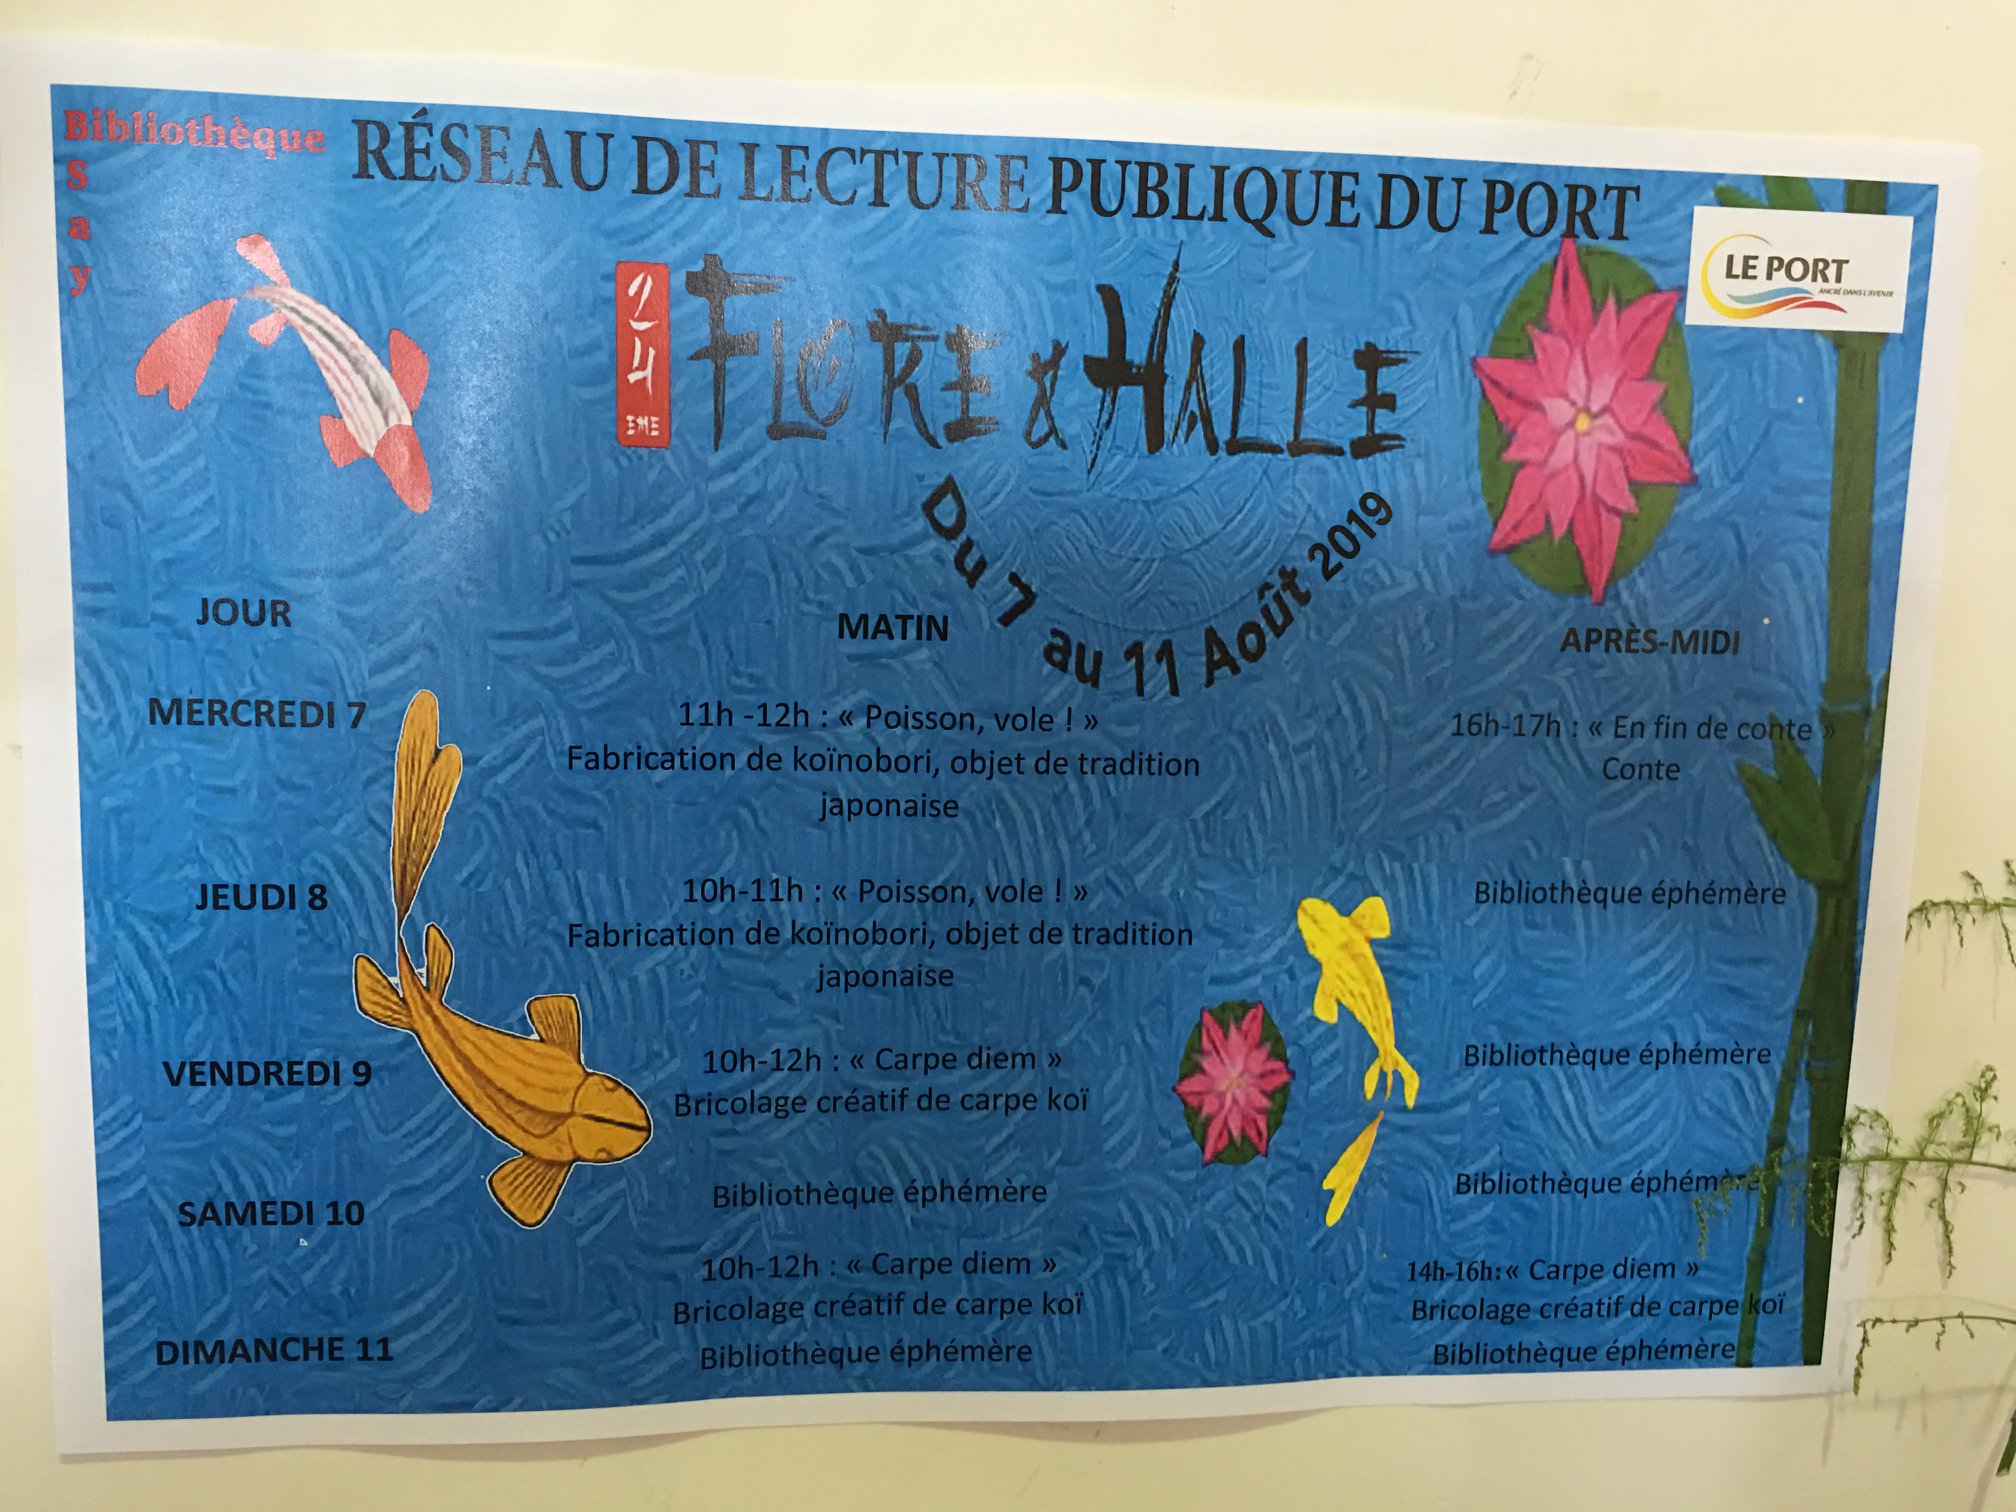 Bibliothèque
Say
RÉSEAU DE LECTURE PUBLIQUE DU PORT
LE PORT
ANCRÉ DANS L'AVENIR
24 EME
FLORE & HALLE
Du 7 au 11 Août 2019
JOUR
MATIN
APRÈS-MIDI
MERCREDI 7
11h -12h : « Poisson, vole ! »
Fabrication de koïnobori, objet de tradition
japonaise
16h-17h : « En fin de conte »
Conte
JEUDI 8
10h-11h : « Poisson, vole ! »
Fabrication de koïnobori, objet de tradition
japonaise
Bibliothèque éphémère
VENDREDI 9
10h-12h : « Carpe diem »
Bricolage créatif de carpe koï
Bibliothèque éphémère
SAMEDI 10
Bibliothèque éphémère
Bibliothèque éphémère
DIMANCHE 11
10h-12h : « Carpe diem »
Bricolage créatif de carpe koï
Bibliothèque éphémère
14h-16h: « Carpe diem »
Bricolage créatif de carpe koï
Bibliothèque éphémère